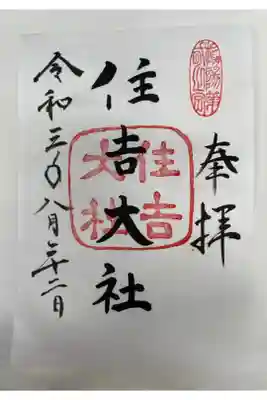 奉拝
住吉大社
住吉
大社
令和三年八月二十二日